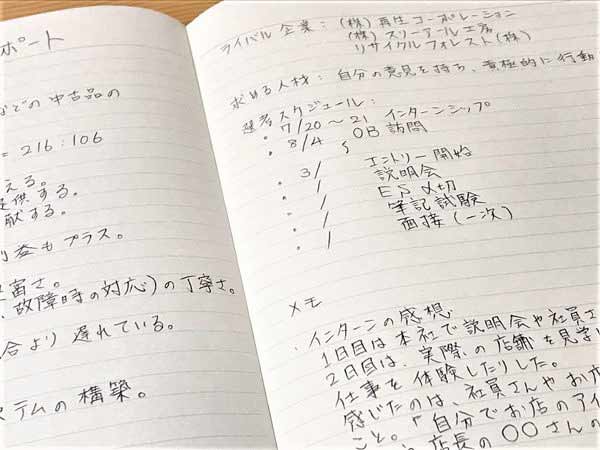 ポート
などの中古品の
= 216:106
える。
提供する。
献する。
利益もプラス。
富さ。
、故障時の対応)の丁寧さ。
合より遅れている。
ステムの構築。
ライバル企業:(株)再生コーポレーション
(株)スリーアール工房
リサイクルフォレスト(株)
求める人材:自分の意見を持ち、積極的に行動
選考スケジュール:
・7/20〜21 インターンシップ
・8/4 OB訪問
・3/ エントリー開始
・ / 説明会
・ / ES〆切
・ / 筆記試験
・ / 面接(一次)
メモ
・インターンの感想
1日目は本社で説明会や社員さ
2日目は、実際の店舗を見学し
仕事を体験したりした。
感じたのは、社員さんやお店
こと。「自分でお店のアイ
、店長の〇〇さんの